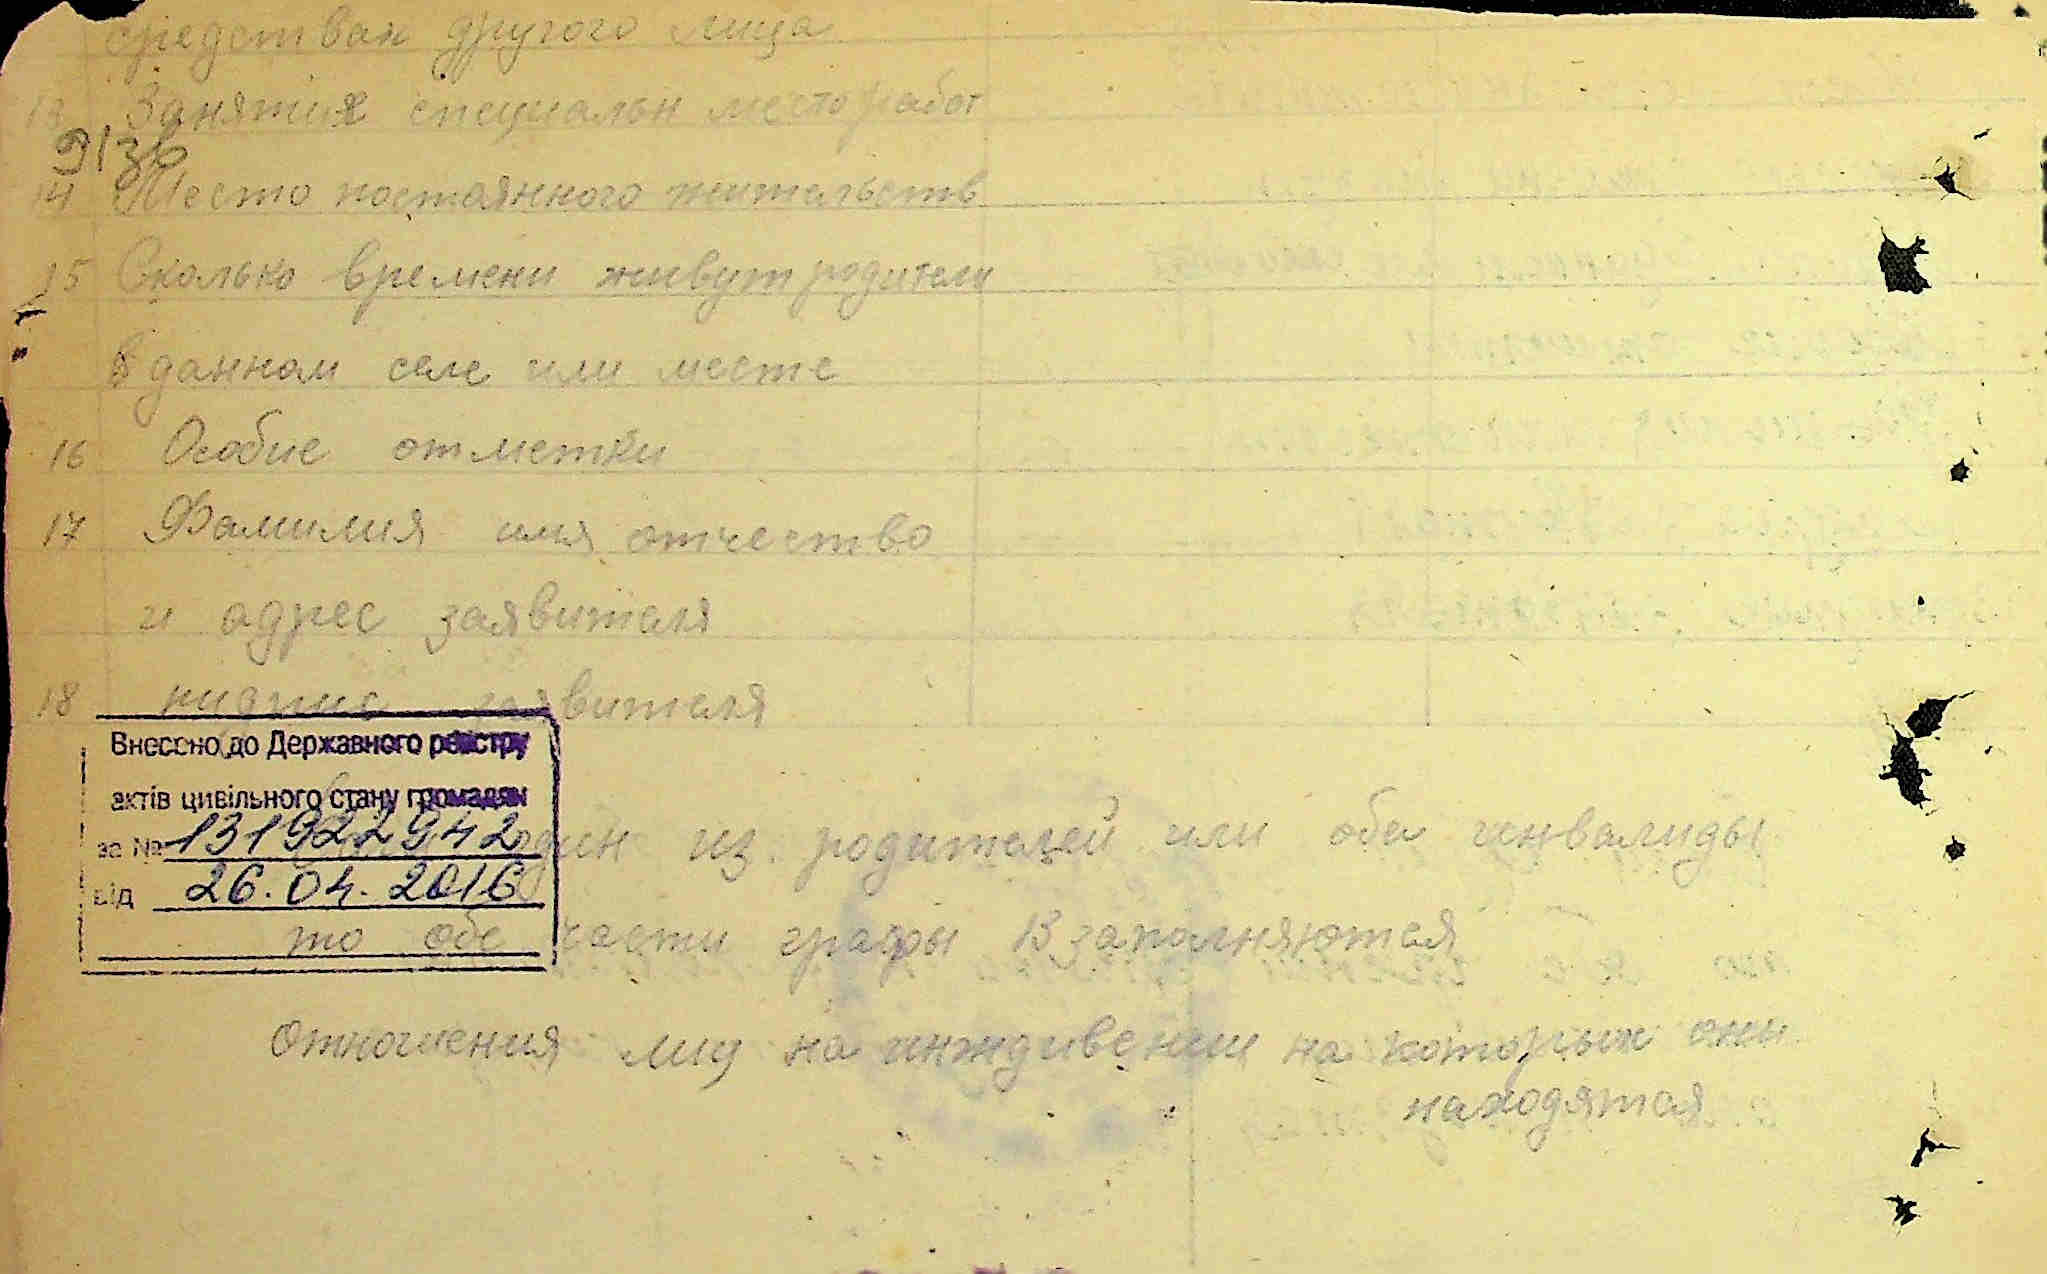 средствах другого лица
13 Занятия специальн место работ
9/зв
14 Место постоянного жительств
15 Сколько времени живут родители
в данном селе или месте
16 Особие отметки
17 Фамилия имя отчество
и адрес заявителя
18 заявителя
Внесено до Державного реєстру
актів цивільного стану громадян
за № 131922942
один из родителей или оба инвалиды
від 26.04.2016
то обе части графы 13 заполняются
Отношения лиц на инждивении на которых они
находятся